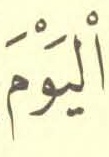 اْليَوْمَ